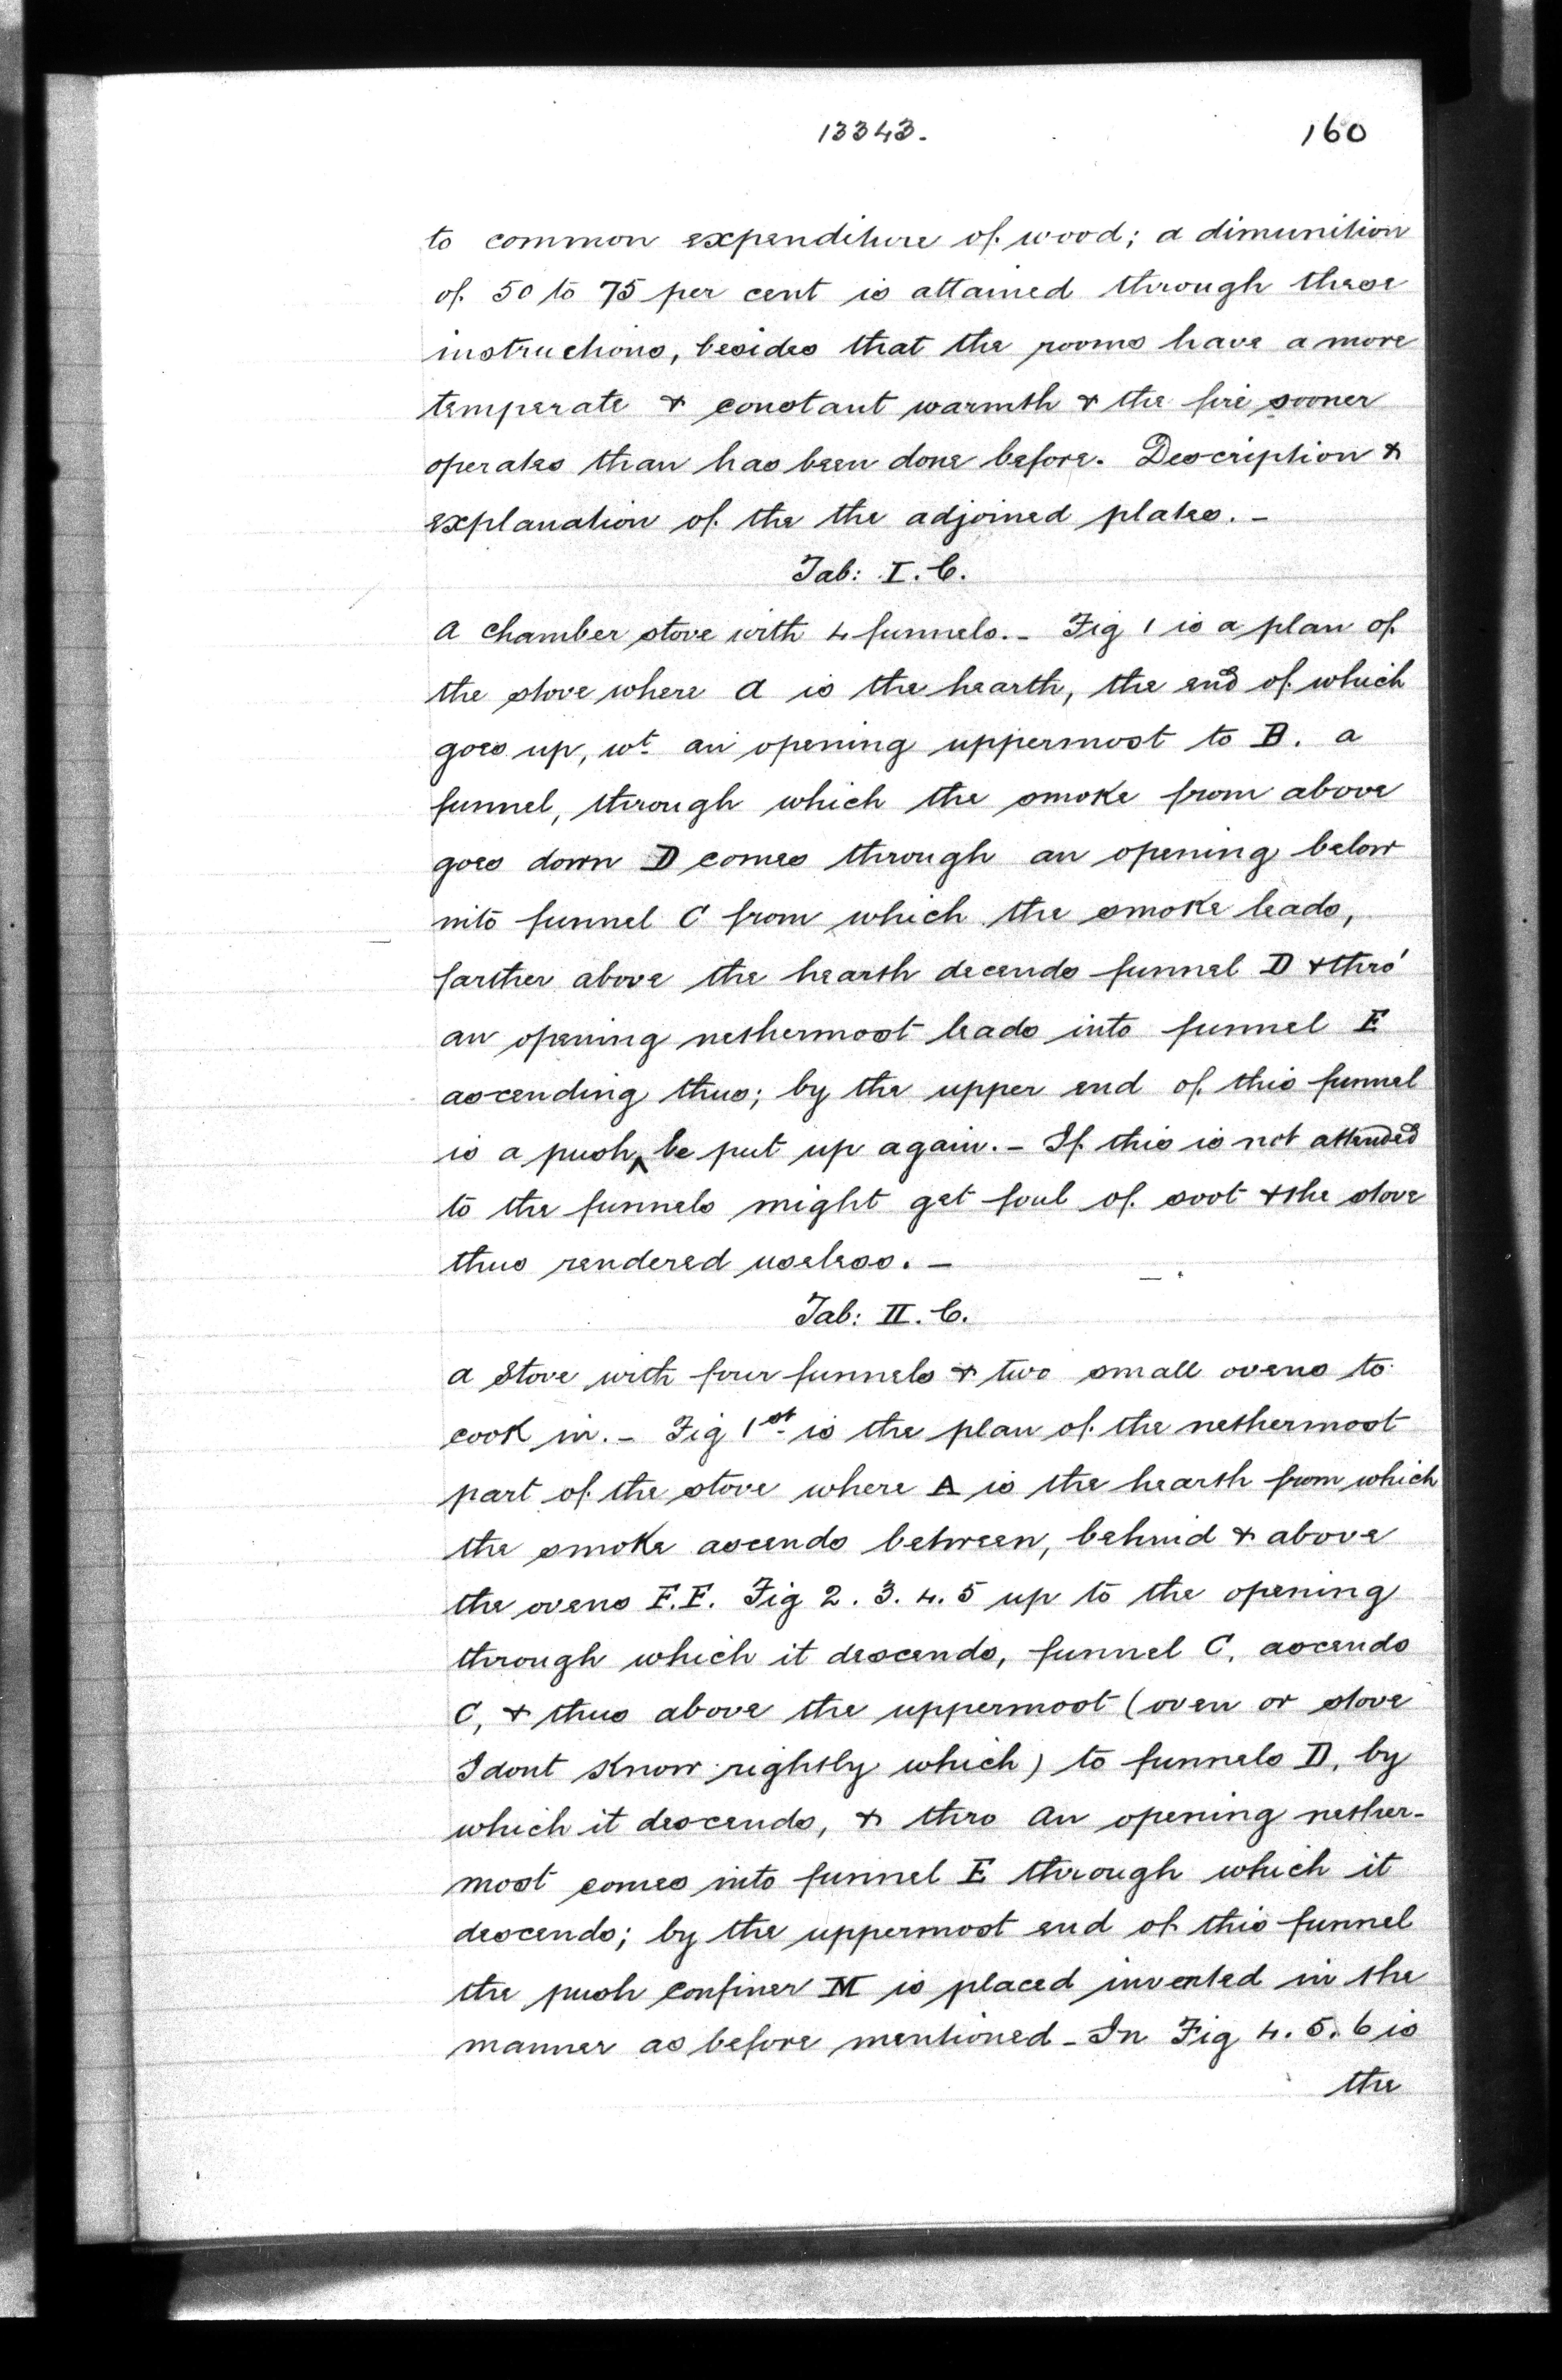 13343.
160
to common expenditure of wood; a dimunition
of 50 to 75 per cent is attained through these
instructions, besides that the rooms have a more
temperate & constant warmth & the fire sooner
operates than has been done before. Description &
explanation of the the adjoined plates. -
Tab: I. C.
A chamber stove with 4 funnels. - Fig 1 is a plan of
the stove where A is the hearth, the end of which
goes up, wt an opening uppermost to B. a
funnel, through which the smoke from above
goes down D comes through an opening below
into funnel C from which the smoke leads,
farther above the hearth decends funnel D & thro'
an opening nethermost leads into funnel E
ascending thus; by the upper end of this funnel
is a push ‸ be put up again. - If this is not attended
to the funnels might get foul of soot & the stove
thus rendered useless. -
Tab: II. C.
A Stove with four funnels & two small ovens to
cook in. - Fig 1st is the plan of the nethermost
part of the stove where A is the hearth from which
the smoke ascends between, behind & above
the ovens F.F. Fig 2. 3. 4. 5 up to the opening
through which it descends, funnel C, ascends
C, & thus above the uppermost (oven or stove
I dont know rightly which) to funnels D, by
which it descends, & thro An opening nether-
most comes into funnel E through which it
descends; by the uppermost end of this funnel
the push confiner M is placed inverted in the
manner as before mentioned - In Fig 4. 5. 6 is
the